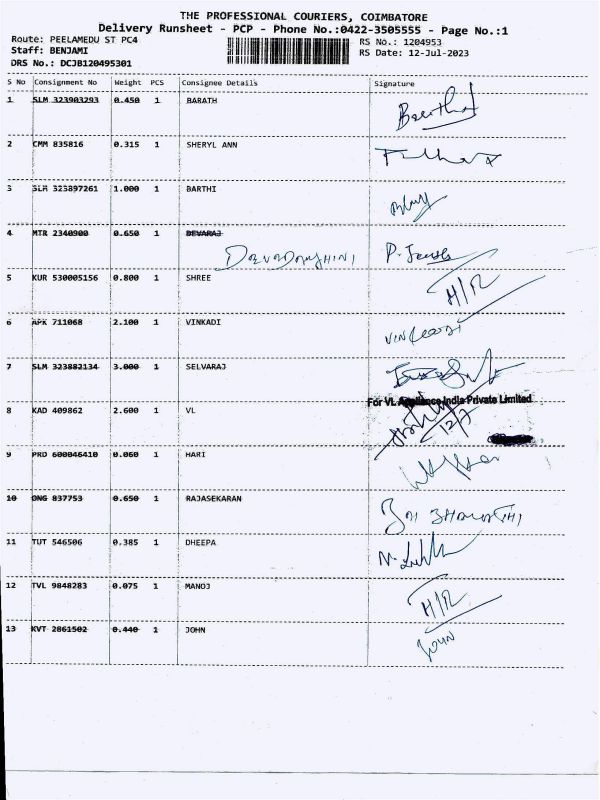 THE PROFESSIONAL COURIERS, COIMBATORE
Delivery Runsheet - PCP - Phone No.:0422-3505555 - Page No.:1
Route: PEELAMEDU ST PC4
RS No.: 1204953
Staff: BENJAMI
RS Date: 12-Jul-2023
DRS No.: DCJB120495301
S No Consignment No Weight PCS Consignee Details Signature
1 SLM 323903293 0.450 1 BARATH
2 CMM 835816 0.315 1 SHERYL ANN
3 SLM 323897261 1.000 1 BARTHI
4 MTR 2340900 0.650 1 DEVARAJ
DEVADARSHINI
5 KUR 530005156 0.800 1 SHREE H/R
6 APK 711068 2.100 1 VINKADI
7 SLM 323882134 3.000 1 SELVARAJ
For VL Appliance India Private Limited
8 KAD 409862 2.600 1 VL 12/7
9 PRD 600046410 0.060 1 HARI
10 ONG 837753 0.650 1 RAJASEKARAN
11 TUT 546506 0.385 1 DHEEPA
12 TVL 9848283 0.075 1 MANOJ H/R
13 KVT 2861502 0.440 1 JOHN JOHN